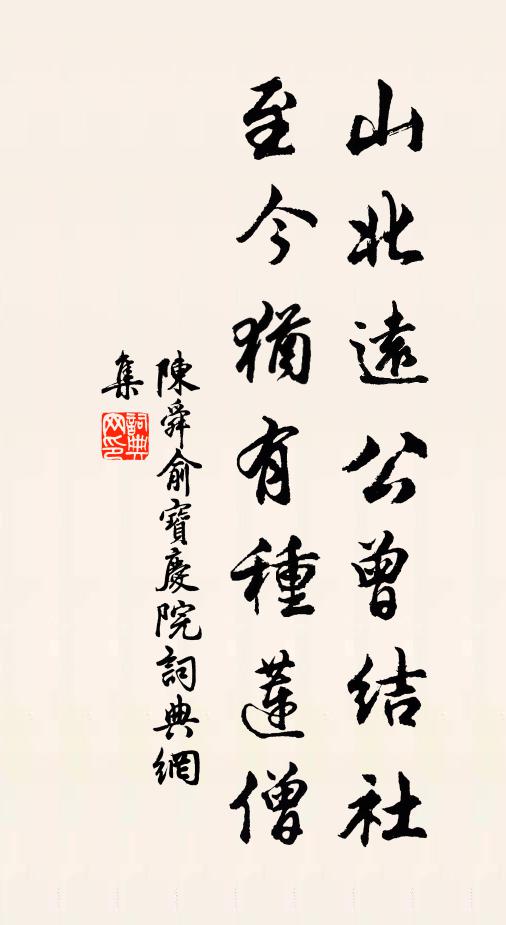 山北遠公曾結社
至今猶有種蓮僧
陳舜俞寶慶院詞典網
集
詞典
网印